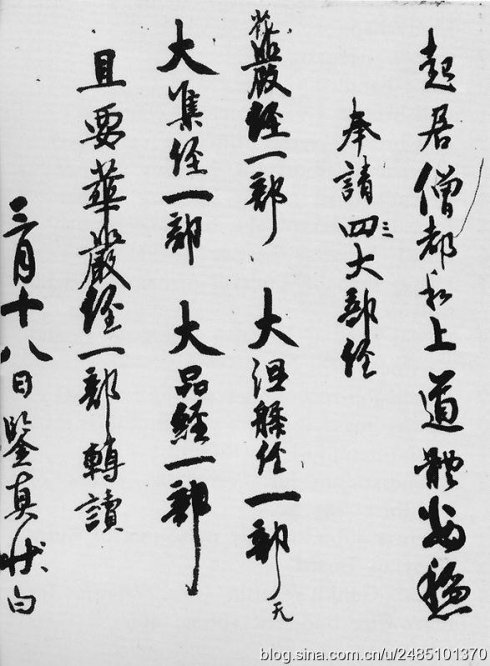 起居僧都和上道體安穩
奉請四大部經
三
花嚴經一部 大涅槃經一部
无
大集經一部 大品經一部
且要華嚴經一部轉讀
三月十八日鑒真狀白
blog.sina.com.cn/u/2485101370